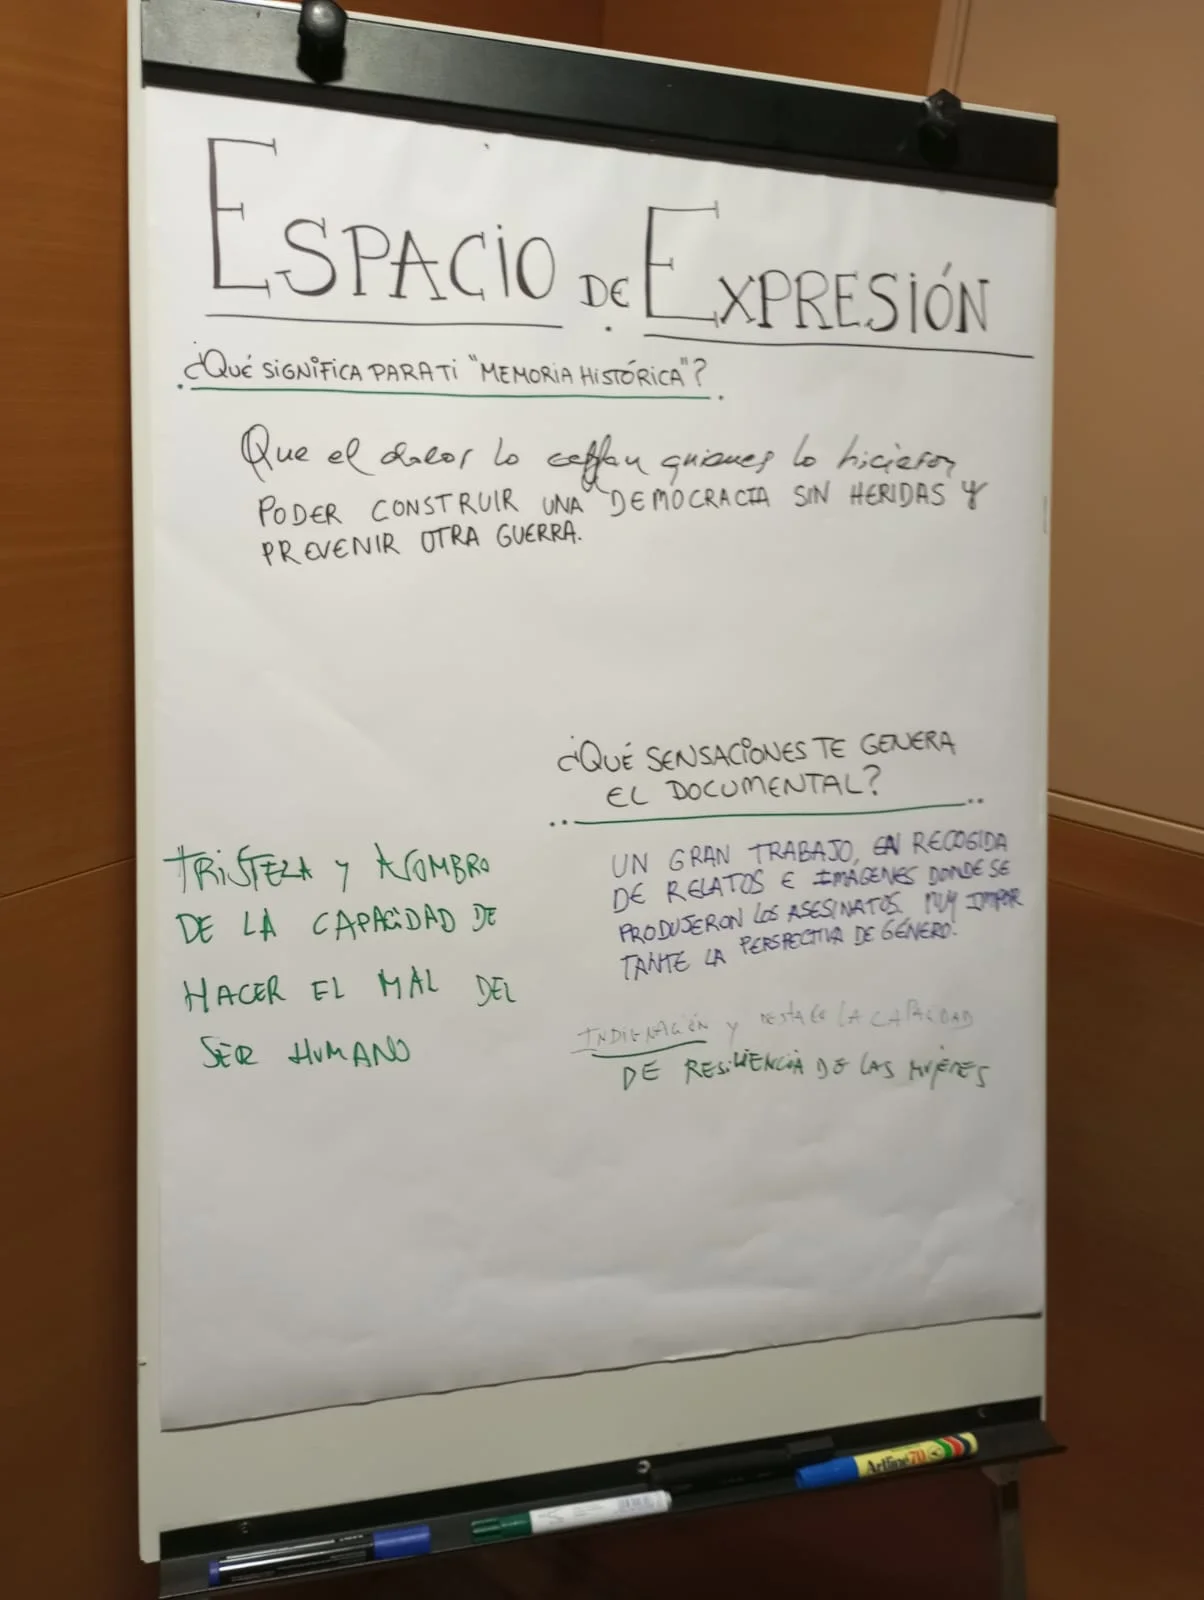 ESPACIO DE EXPRESIÓN
¿QUÉ SIGNIFICA PARA TI "MEMORIA HISTÓRICA"?
Que el dolor lo quienes lo hicieron
PODER CONSTRUIR UNA DEMOCRACIA SIN HERIDAS Y
PREVENIR OTRA GUERRA.
¿QUÉ SENSACIONES TE GENERA
EL DOCUMENTAL?
TRISTEZA Y ASOMBRO
DE LA CAPACIDAD DE
HACER EL MAL DEL
SER HUMANO
UN GRAN TRABAJO, EN RECOGIDA
DE RELATOS E IMÁGENES DONDE SE
PRODUJERON LOS ASESINATOS. MUY IMPOR
TANTE LA PERSPECTIVA DE GÉNERO.
INDIGNACIÓN Y DESTACO LA CAPACIDAD
DE RESILIENCIA DE LAS MUJERES
Artline 70